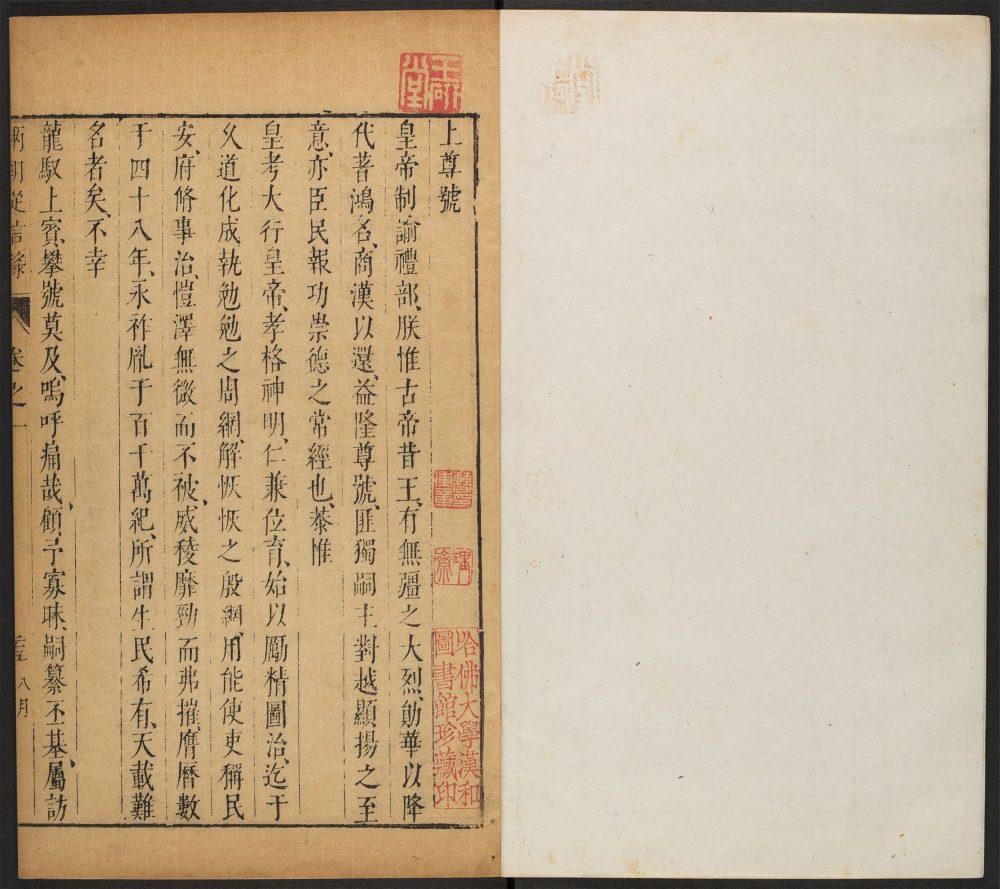 上尊號
皇帝制諭禮部、朕惟古帝昔王、有無疆之大烈、勛華以降
代著鴻名、商漢以還、益隆尊號、匪獨嗣主對越顯揚之至
意、亦臣民報功崇德之常經也、恭惟
皇考大行皇帝、孝格神明、仁兼位育、始以勵精圖治、迄于
久道化成、執勉勉之周綱、解恢恢之殷網、用能使吏稱民
安、府脩事治、愷澤無微而不被、威稜靡勁而弗摧、膺曆數
于四十八年、永祚胤于百千萬紀、所謂生民希有、天載難
名者矣、不幸
龍馭上賓、攀號莫及、嗚呼痛哉、顧予寡昧、嗣纂丕基、屬訪
兩朝從信錄
卷之一
八月
哈佛大學漢和
圖書館珍藏印